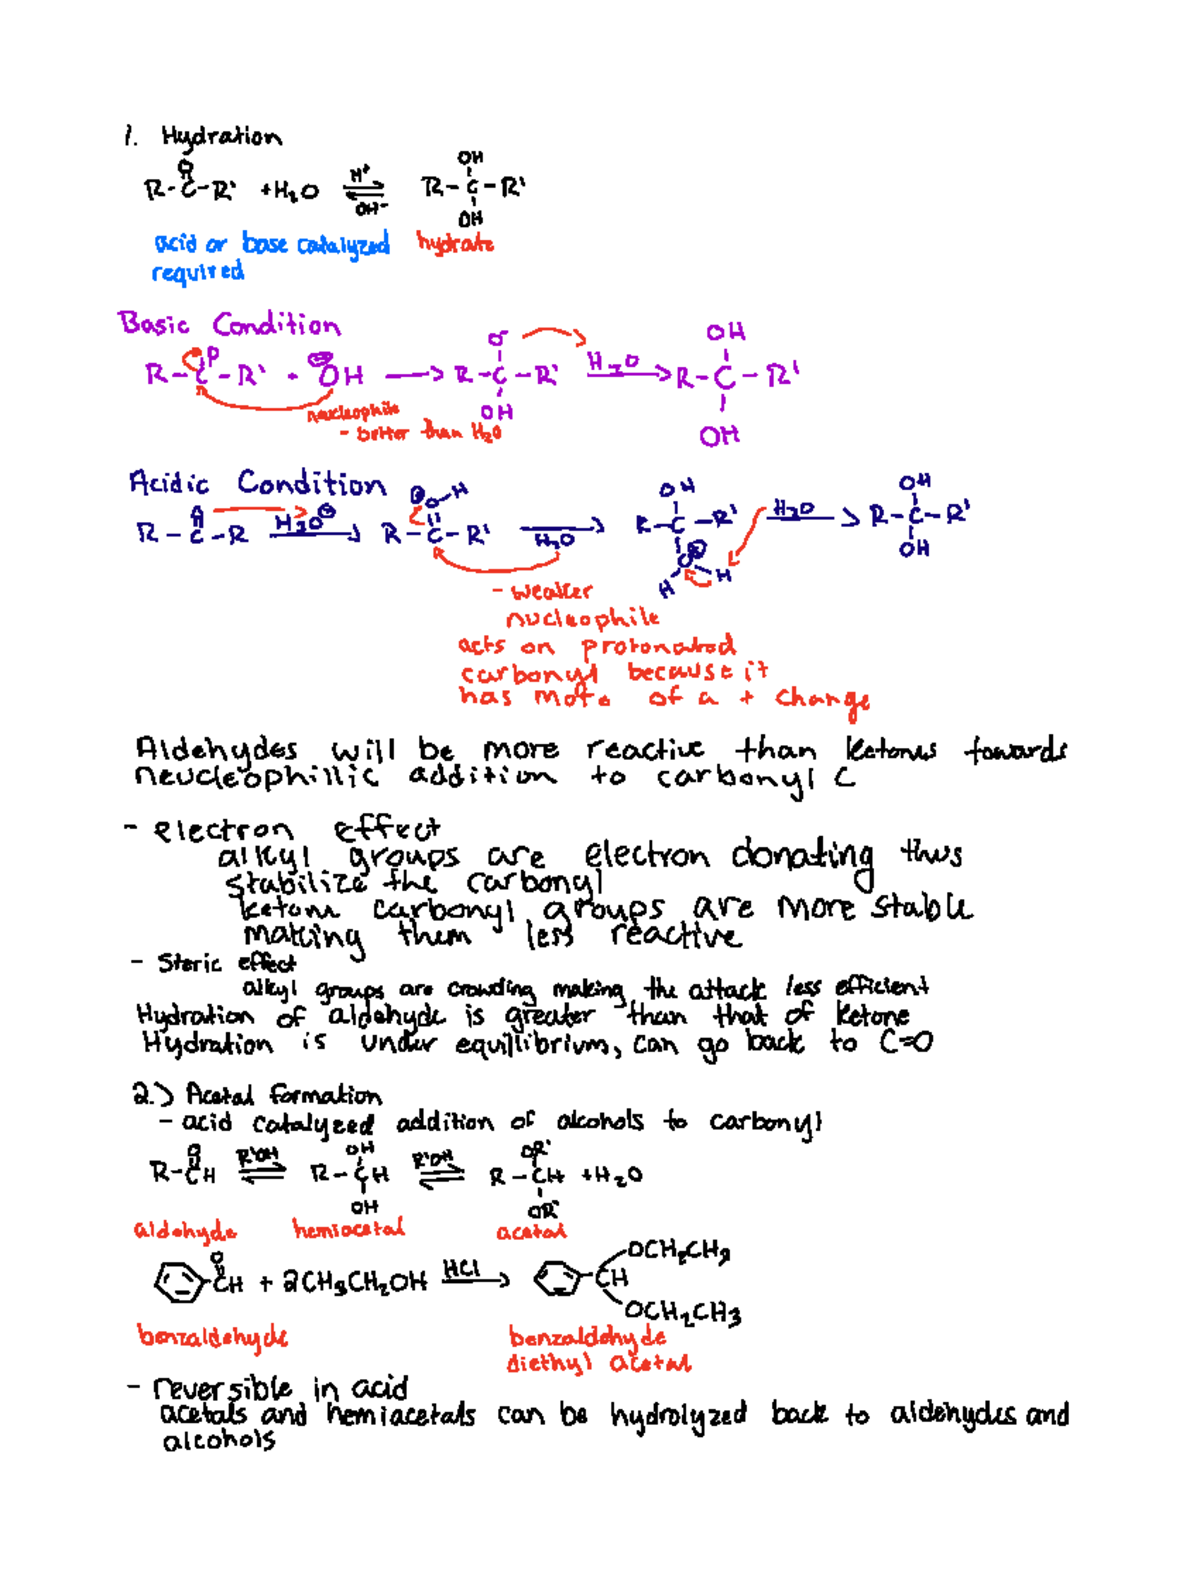 1. Hydration
R-C-R' +H2O H+ OH- R-C-R' OH OH
acid or base catalyzed hydrate
required
Basic Condition
R-C-R' + OH → R-C-R' OH H2O → R-C-R' OH OH
nucleophile
- better than H2O
Acidic Condition
R-C-R H3O⊕ → R-C-R' O-H H2O → R-C-R' OH H H H2O → R-C-R' OH OH
- weaker
nucleophile
acts on protonated
carbonyl because it
has more of a + change
Aldehydes will be more reactive than ketones towards
neucleophillic addition to carbonyl C
- electron effect
alkyl groups are electron donating thus
stabilize the carbonyl
ketone carbonyl groups are more stable
making them less reactive
- Steric effect
alkyl groups are crowding making the attack less efficient
Hydration of aldehyde is greater than that of ketone
Hydration is under equillibrium, can go back to C=O
2.) Acetal formation
- acid catalyzed addition of alcohols to carbonyl
R-CH O R'OH R-CH OH OH R'OH R-CH OR' OR' +H2O
aldehyde hemiacetal acetal
CH O + 2CH3CH2OH HCl → CH OCH2CH3 OCH2CH3
benzaldehyde benzaldehyde
diethyl acetal
- reversible in acid
acetals and hemiacetals can be hydrolyzed back to aldehydes and
alcohols